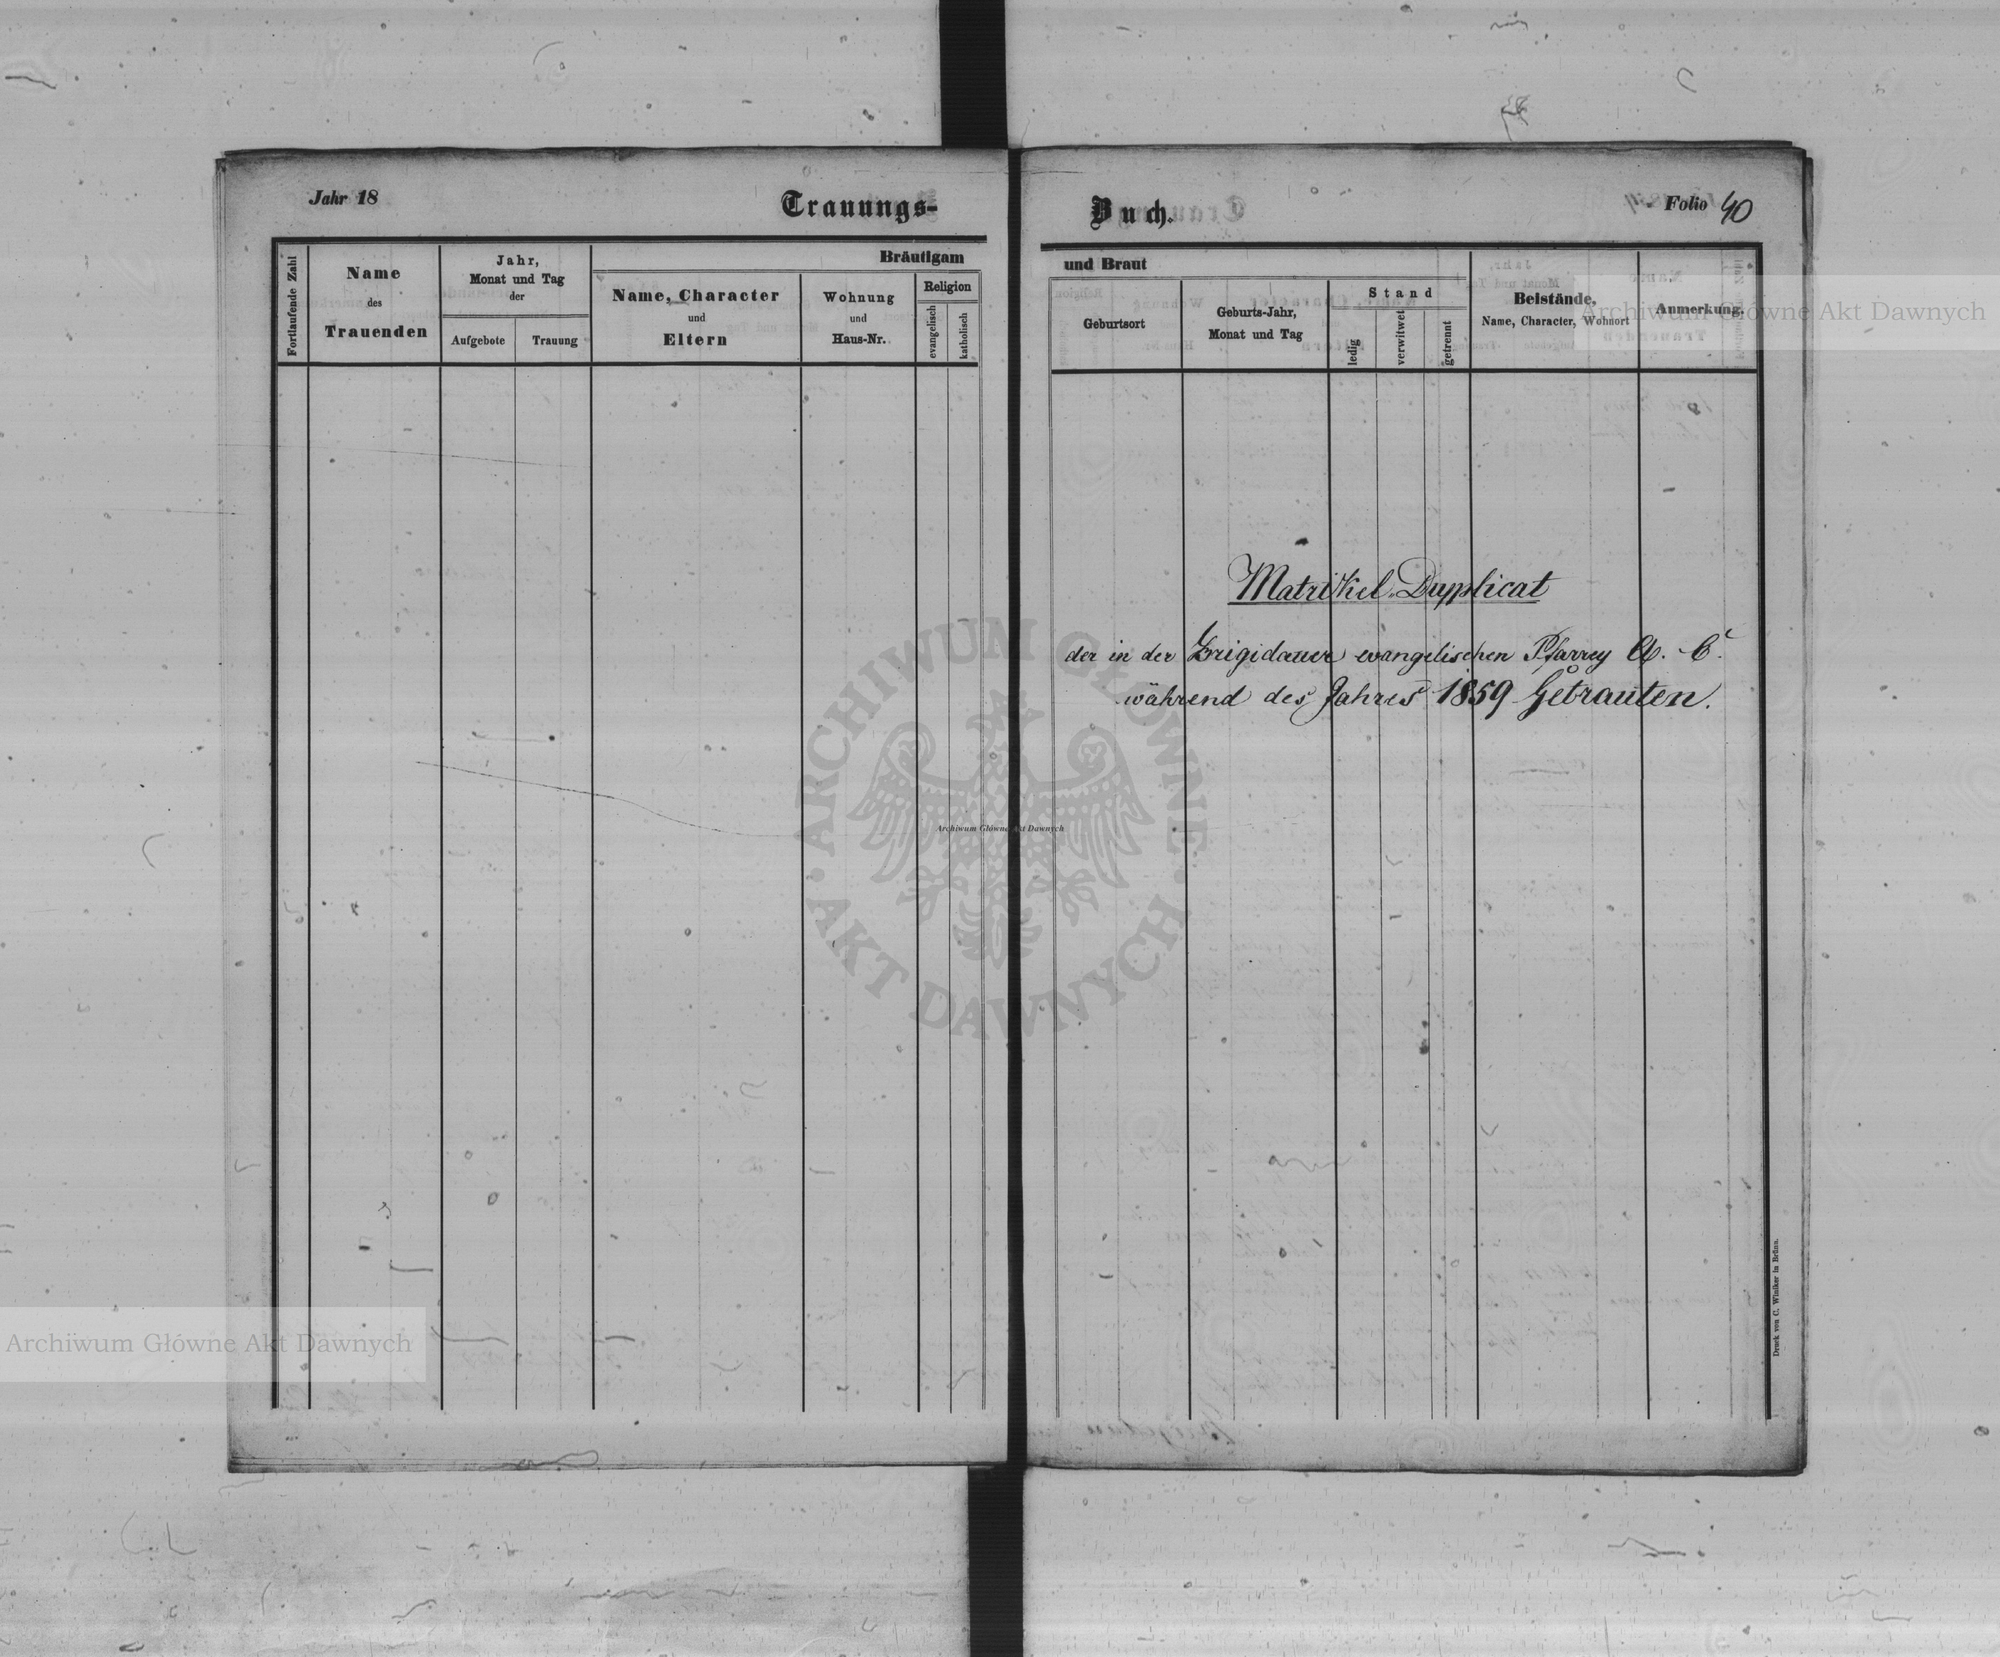 Jahr 18
Trauungs-
Fortlaufende Zahl
Name
des
Trauenden
Jahr,
Monat und Tag
der
Aufgebote
Trauung
Bräutigam
Name, Character
und
Eltern
Wohnung
und
Haus-Nr.
Religion
evangelisch
katholisch
Buch.
Folio 40
und Braut
Geburtsort
Geburts-Jahr,
Monat und Tag
Stand
ledig
verwitwet
getrennt
Beistände,
Name, Character, Wohnort
Anmerkung.
Archiwum Główne Akt Dawnych
Matrikel-Duplicat
der in der Brigidauer evangelischen Pfarrey A. C.
während des Jahres 1859 Getrauten.
ARCHIWUM GŁÓWNE
AKT DAWNYCH
Archiwum Główne Akt Dawnych
Archiwum Główne Akt Dawnych
Druck von C. Winiker in Brünn.